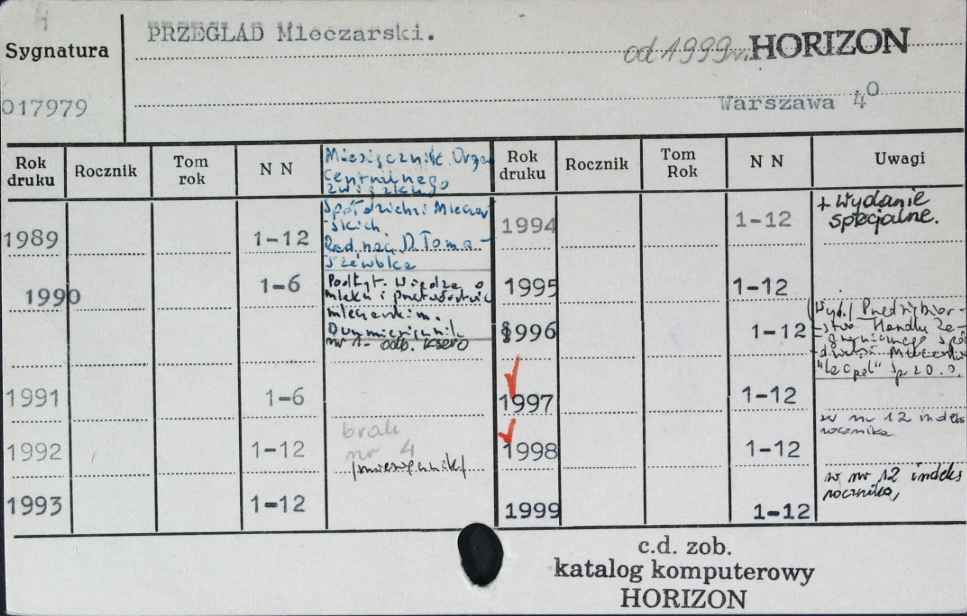 4
PRZEGLAD Mleczarski.
Sygnatura
od 1999 HORIZON
017979
Warszawa 4º
Rok druku
Rocznik
Tom rok
N N
Miesięcznik. Organ
Centralnego
Związku
Spółdzielni Mleczar
-skich.
Red. nacz. D. Toma-
szewska
1989
1-12
1990
1-6
Podtyt. Wiedza o
mleku i przetwórstwie
mleczarskim.
Dwumiesięcznik
nr 1 - odb. ksero
1991
1-6
1992
1-12
brak
nr 4
/miesięcznik/
1993
1-12
Rok druku
Rocznik
Tom Rok
N N
Uwagi
1994
1-12
+ Wydanie
specjalne.
1995
1-12
1996
1-12
Wyd./ Przedsiębior-
stwo Handlu Za-
granicznego Spół-
dzielni Mleczarsk.
"Lacpol" Sp z o.o.
1997
1-12
w nr 12 indeks
rocznika
1998
1-12
w nr 12 indeks
rocznika,
1999
1-12
c.d. zob.
katalog komputerowy
HORIZON